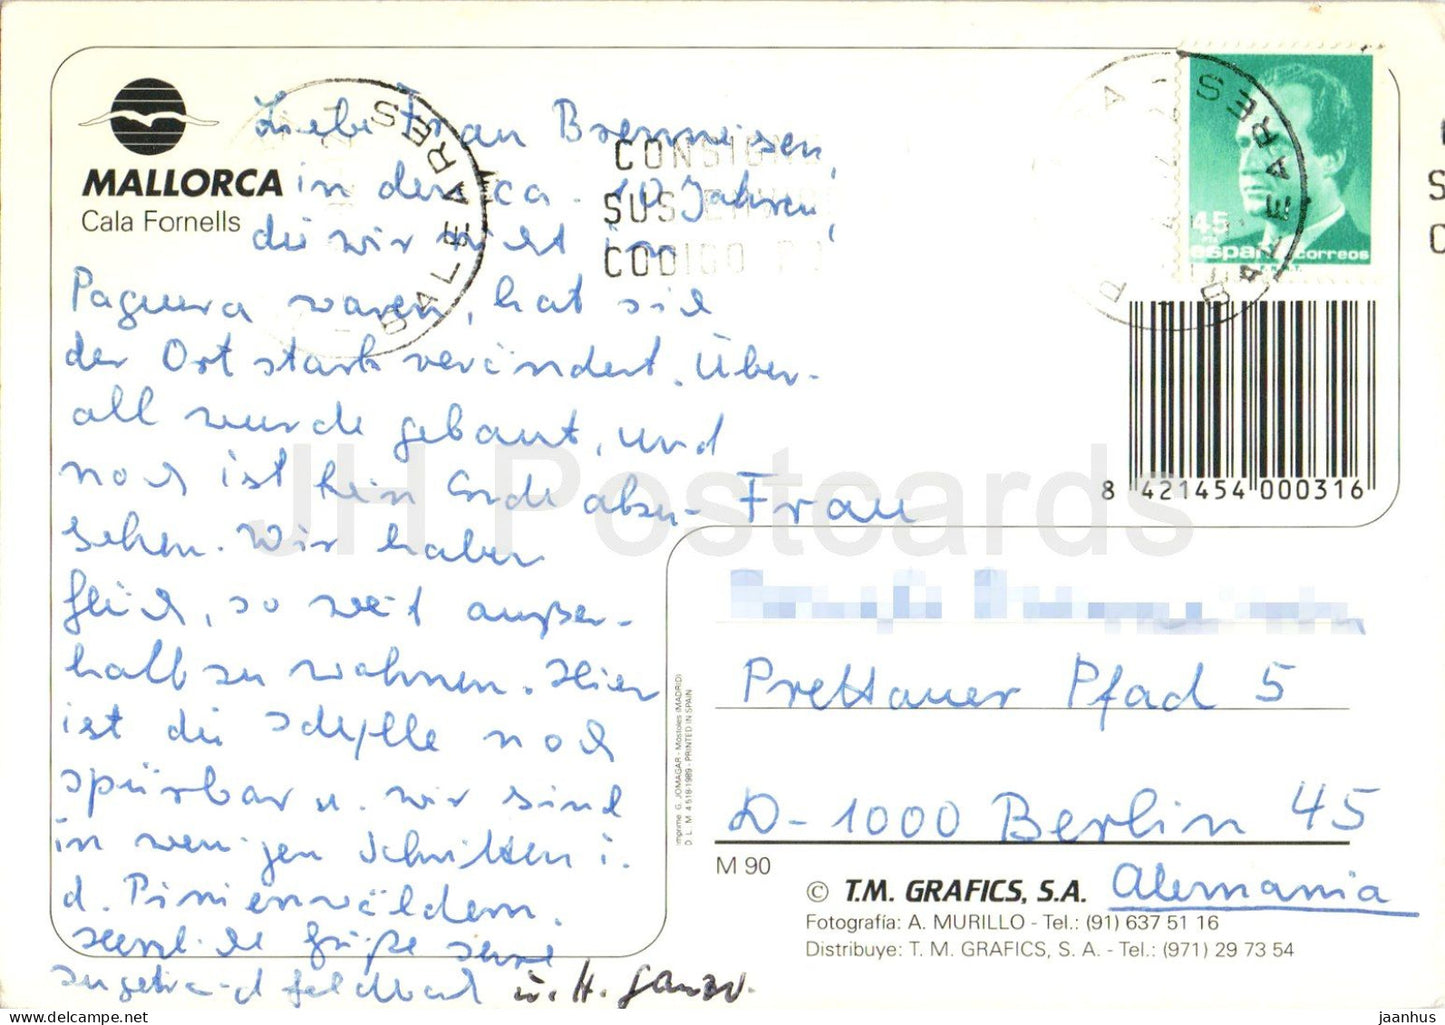 MALLORCA
Cala Fornells
Liebe Frau Brenneisen,
in den ca. 10 Jahren,
die wir nicht in
Paguera waren, hat sich
der Ort stark verändert. Über-
all wurde gebaut, und
noch ist kein Ende abzu-
sehen. Wir haben
Glück, so weit außer-
halb zu wohnen. Hier
ist die Idylle noch
spürbar u. wir sind
in wenigen Schritten i.
d. Pinienwäldern.
Herzliche Grüße Ihre
u. H.
BALEARES
CONSIGNE
SUS
CODIGO P
BALEARES
45
españa correos
8 421454 000316
Frau
Prettauer Pfad 5
D-1000 Berlin 45
Alemania
M 90
© T.M. GRAFICS, S.A.
Fotografía: A. MURILLO - Tel.: (91) 637 51 16
Distribuye: T. M. GRAFICS, S. A. - Tel.: (971) 29 73 54
Imprime G. JOMAGAR - Móstoles (MADRID)
D. L. M 4 518-1989 - PRINTED IN SPAIN
JH Postcards
jaanhus